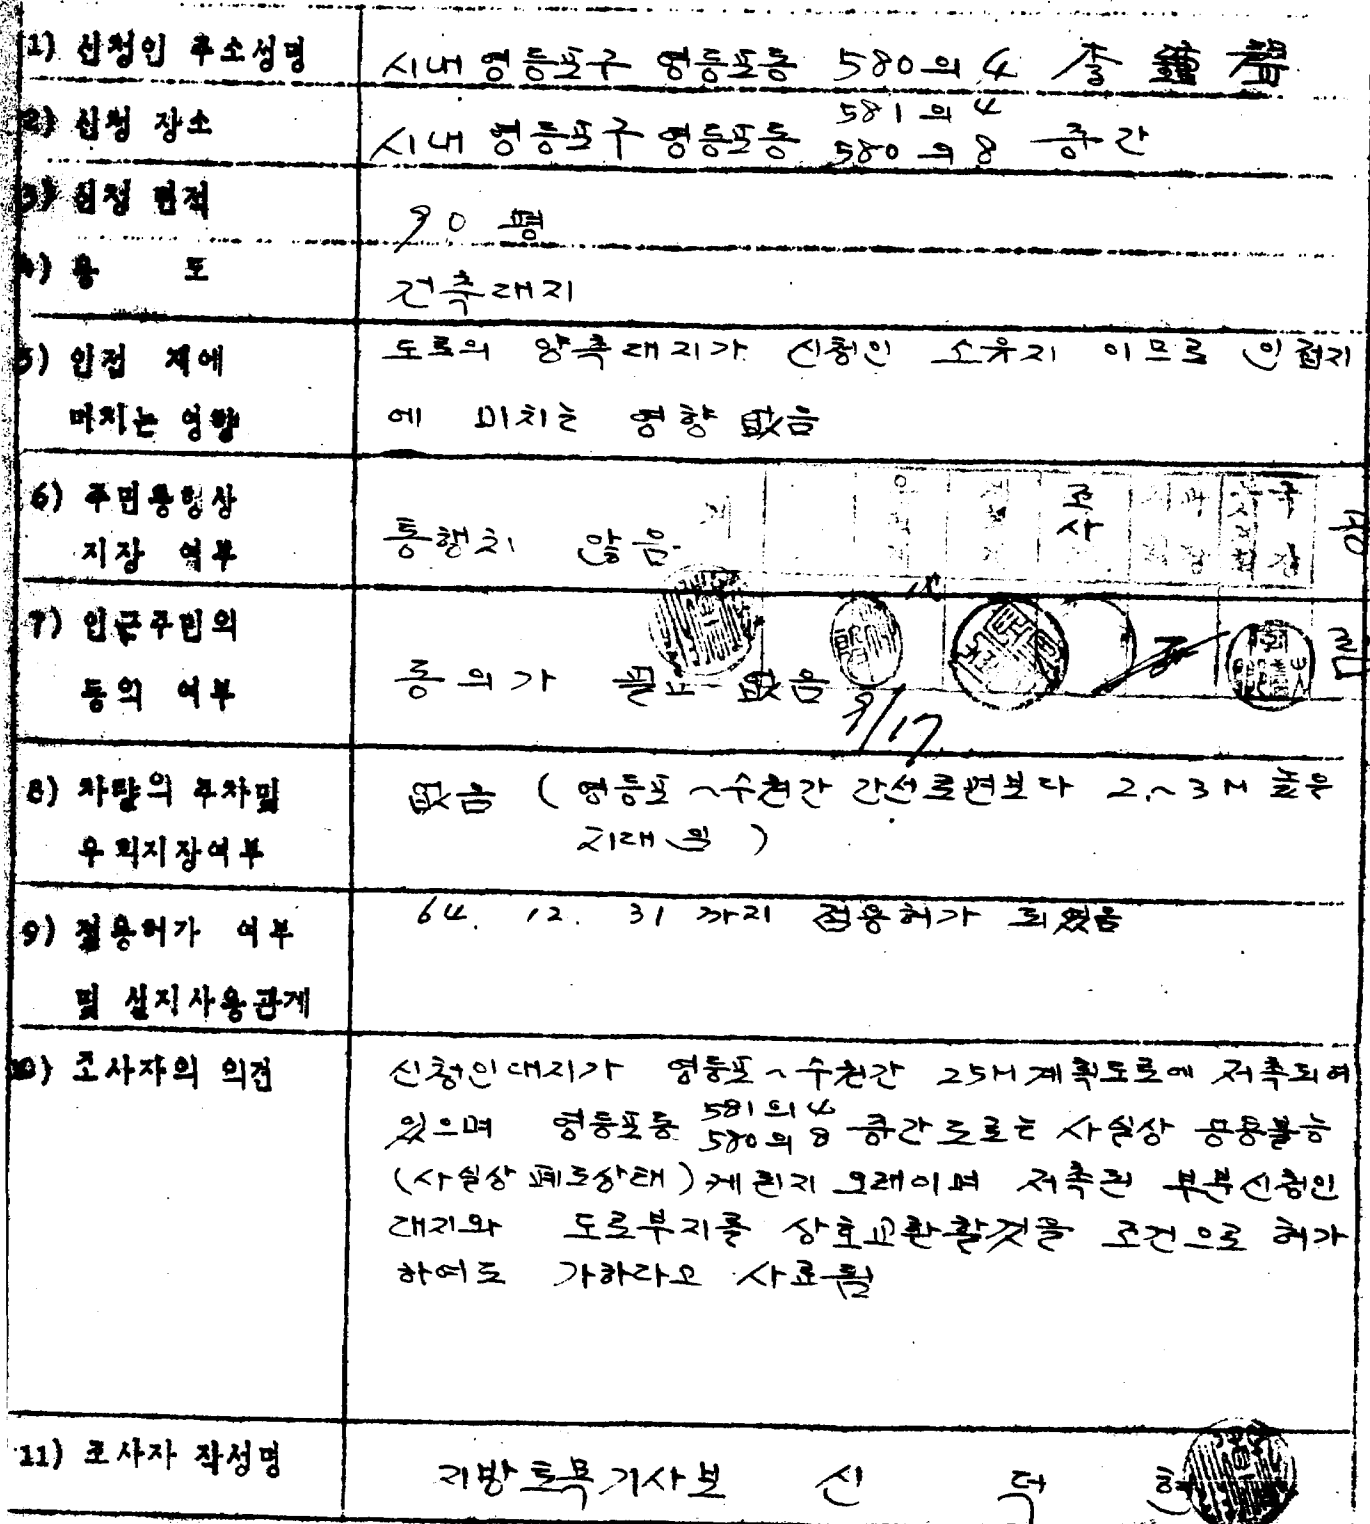 1) 신청인 주소성명
시내 영등포구 영등포동 580의 4 李
2) 신청 장소
581의 4
시내 영등포구 영등포동 580의 8 중간
3) 신청 면적
90 평
4) 용 도
건축대지
5) 인접 지에
도로의 양측 대지가 신청인 소유지 이므로 인접지
미치는 영향
에 미치는 영향 없음
6) 주민통행상
지장 여부
통행치 않음.
조사
국장
7) 인근주민의
동의 여부
동의가 필요 없음
9/17
8) 차량의 주차및
없음 ( 영등포~수원간 간선로면보다 2.~3M 높은
우회지장여부
지대임 )
9) 점용허가 여부
64. 12. 31 까지 점용허가 되였음
및 실지사용관계
10) 조사자의 의견
신청인대지가 영등포~수원간 25M계획도로에 저촉되여
581의 4
있으며 영등포동 580의 8 중간도로는 사실상 통행불능
(사실상 폐도상태)케 된지 오래이며 저촉된 부분신청인
대지와 도로부지를 상호교환할것을 조건으로 허가
하여도 가하라고 사료됨
11) 조사자 작성명
지방토목기사보 신 덕